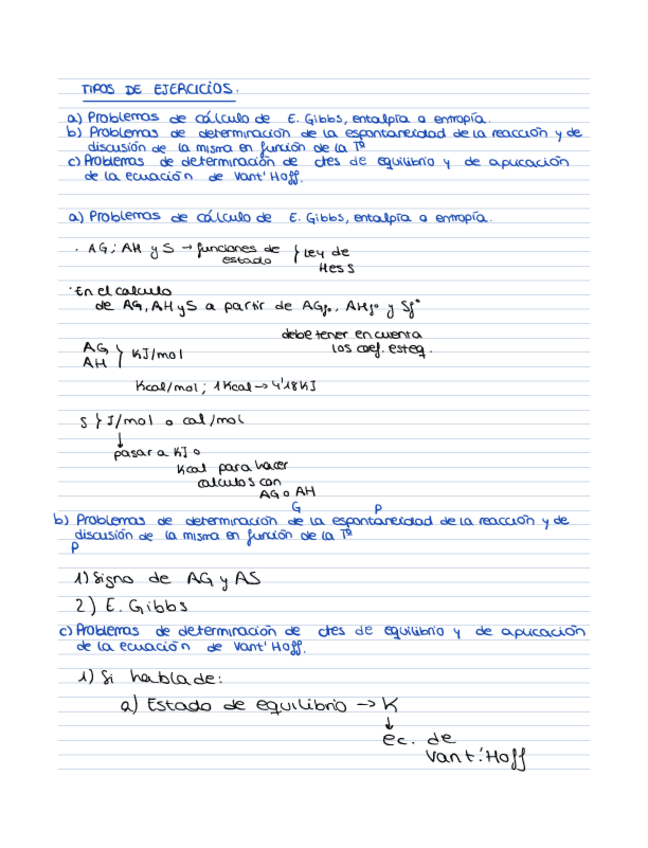 TIPOS DE EJERCICIOS.
a) Problemas de cálculo de E. Gibbs, entalpía o entropía.
b) Problemas de determinación de la espontaneidad de la reacción y de
discusión de la misma en función de la Tª
c) Problemas de determinación de ctes de equilibrio y de aplicación
de la ecuación de Vant'Hoff.
a) Problemas de cálculo de E. Gibbs, entalpía o entropía.
· AG; AH y S → funciones de } Ley de
estado Hess
· En el calculo
de AG, AH y S a partir de AGfº, AHfº y Sfº
debe tener en cuenta
los coef. esteq.
AG } KJ/mol
AH
Kcal/mol; 1Kcal → 4'18KJ
S } J/mol o cal/mol
↓
pasar a KJ o
Kcal para hacer
calculos con
AG o AH
G P
b) Problemas de determinación de la espontaneidad de la reacción y de
discusión de la misma en función de la Tª
P
1) Signo de AG y AS
2) E. Gibbs
c) Problemas de determinación de ctes de equilibrio y de aplicación
de la ecuación de Vant'Hoff.
1) Si habla de:
a) Estado de equilibrio → K
↓
ec. de
Vant'Hoff